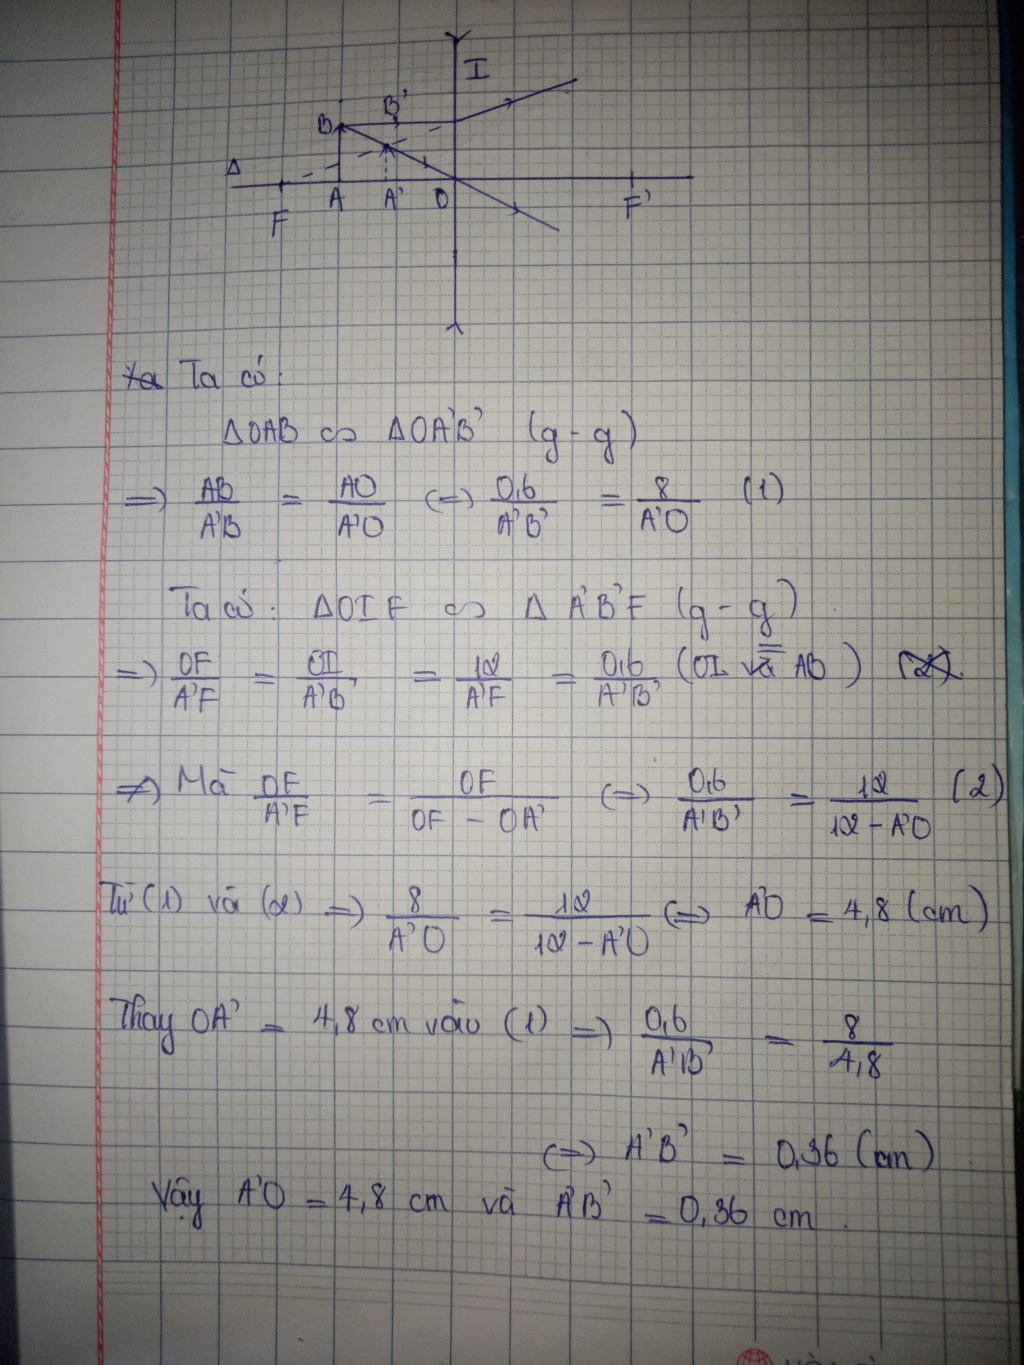 I
B B'
Δ
F A A' O F'
Ta có:
ΔOAB ∽ ΔOA'B' (g-g)
=> AB/A'B = AO/A'O <=> 0,6/A'B' = 8/A'O (1)
Ta có: ΔOIF ∽ Δ A'B'F (g-g)
=> OF/A'F = OI/A'B' = 12/A'F = 0,6/A'B' (OI = AB)
Mà OF/A'F = OF/OF - OA' <=> 0,6/A'B' = 12/12 - A'O (2)
Từ (1) và (2) => 8/A'O = 12/12 - A'O <=> A'O = 4,8 (cm)
Thay OA' = 4,8 cm vào (1) => 0,6/A'B' = 8/4,8
<=> A'B' = 0,36 (cm)
Vậy A'O = 4,8 cm và A'B' = 0,36 cm.